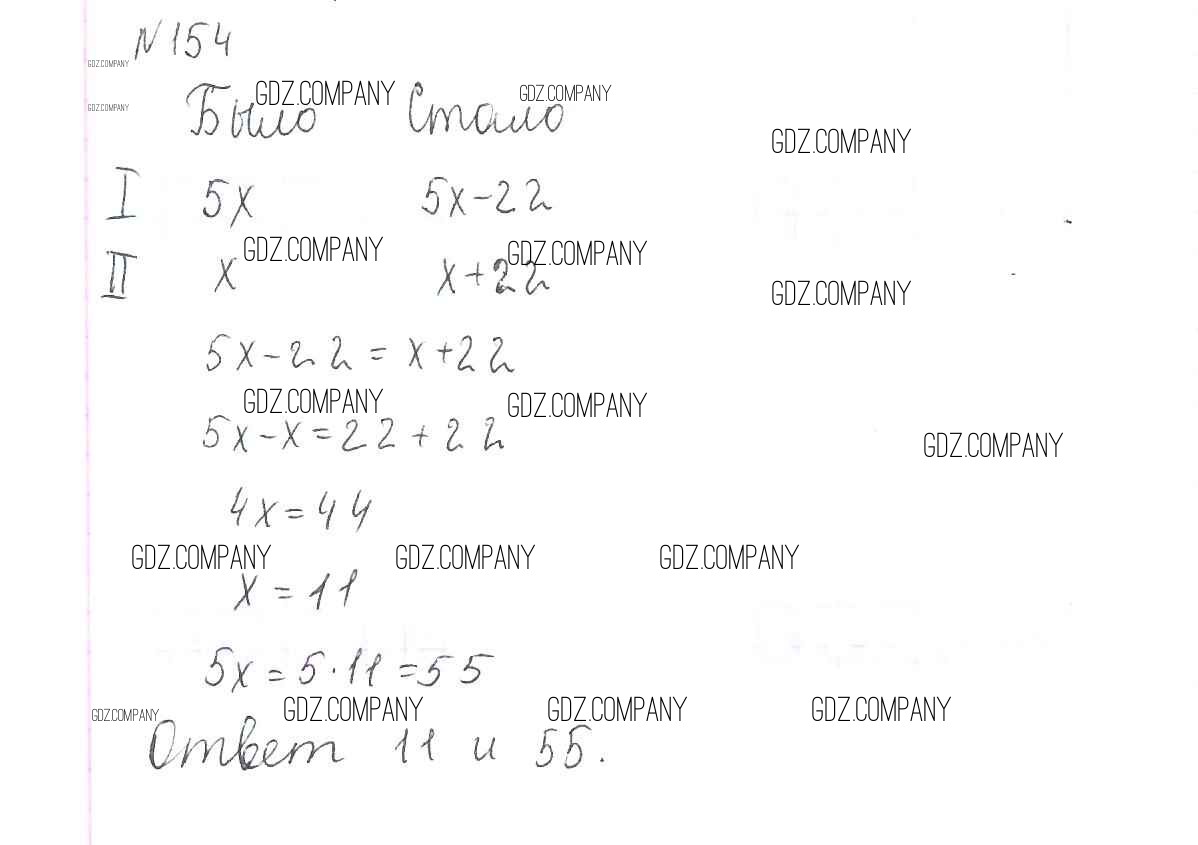 № 154
GDZ.COMPANY
GDZ.COMPANY GDZ.COMPANY
GDZ.COMPANY
Было Стало
GDZ.COMPANY
I 5x 5x-22
GDZ.COMPANY GDZ.COMPANY
II x x+22
GDZ.COMPANY
5x-22=x+22
GDZ.COMPANY GDZ.COMPANY
5x-x=22+22
GDZ.COMPANY
4x=44
GDZ.COMPANY GDZ.COMPANY GDZ.COMPANY
x=11
5x=5·11=55
GDZ.COMPANY GDZ.COMPANY GDZ.COMPANY GDZ.COMPANY
Ответ 11 и 55.